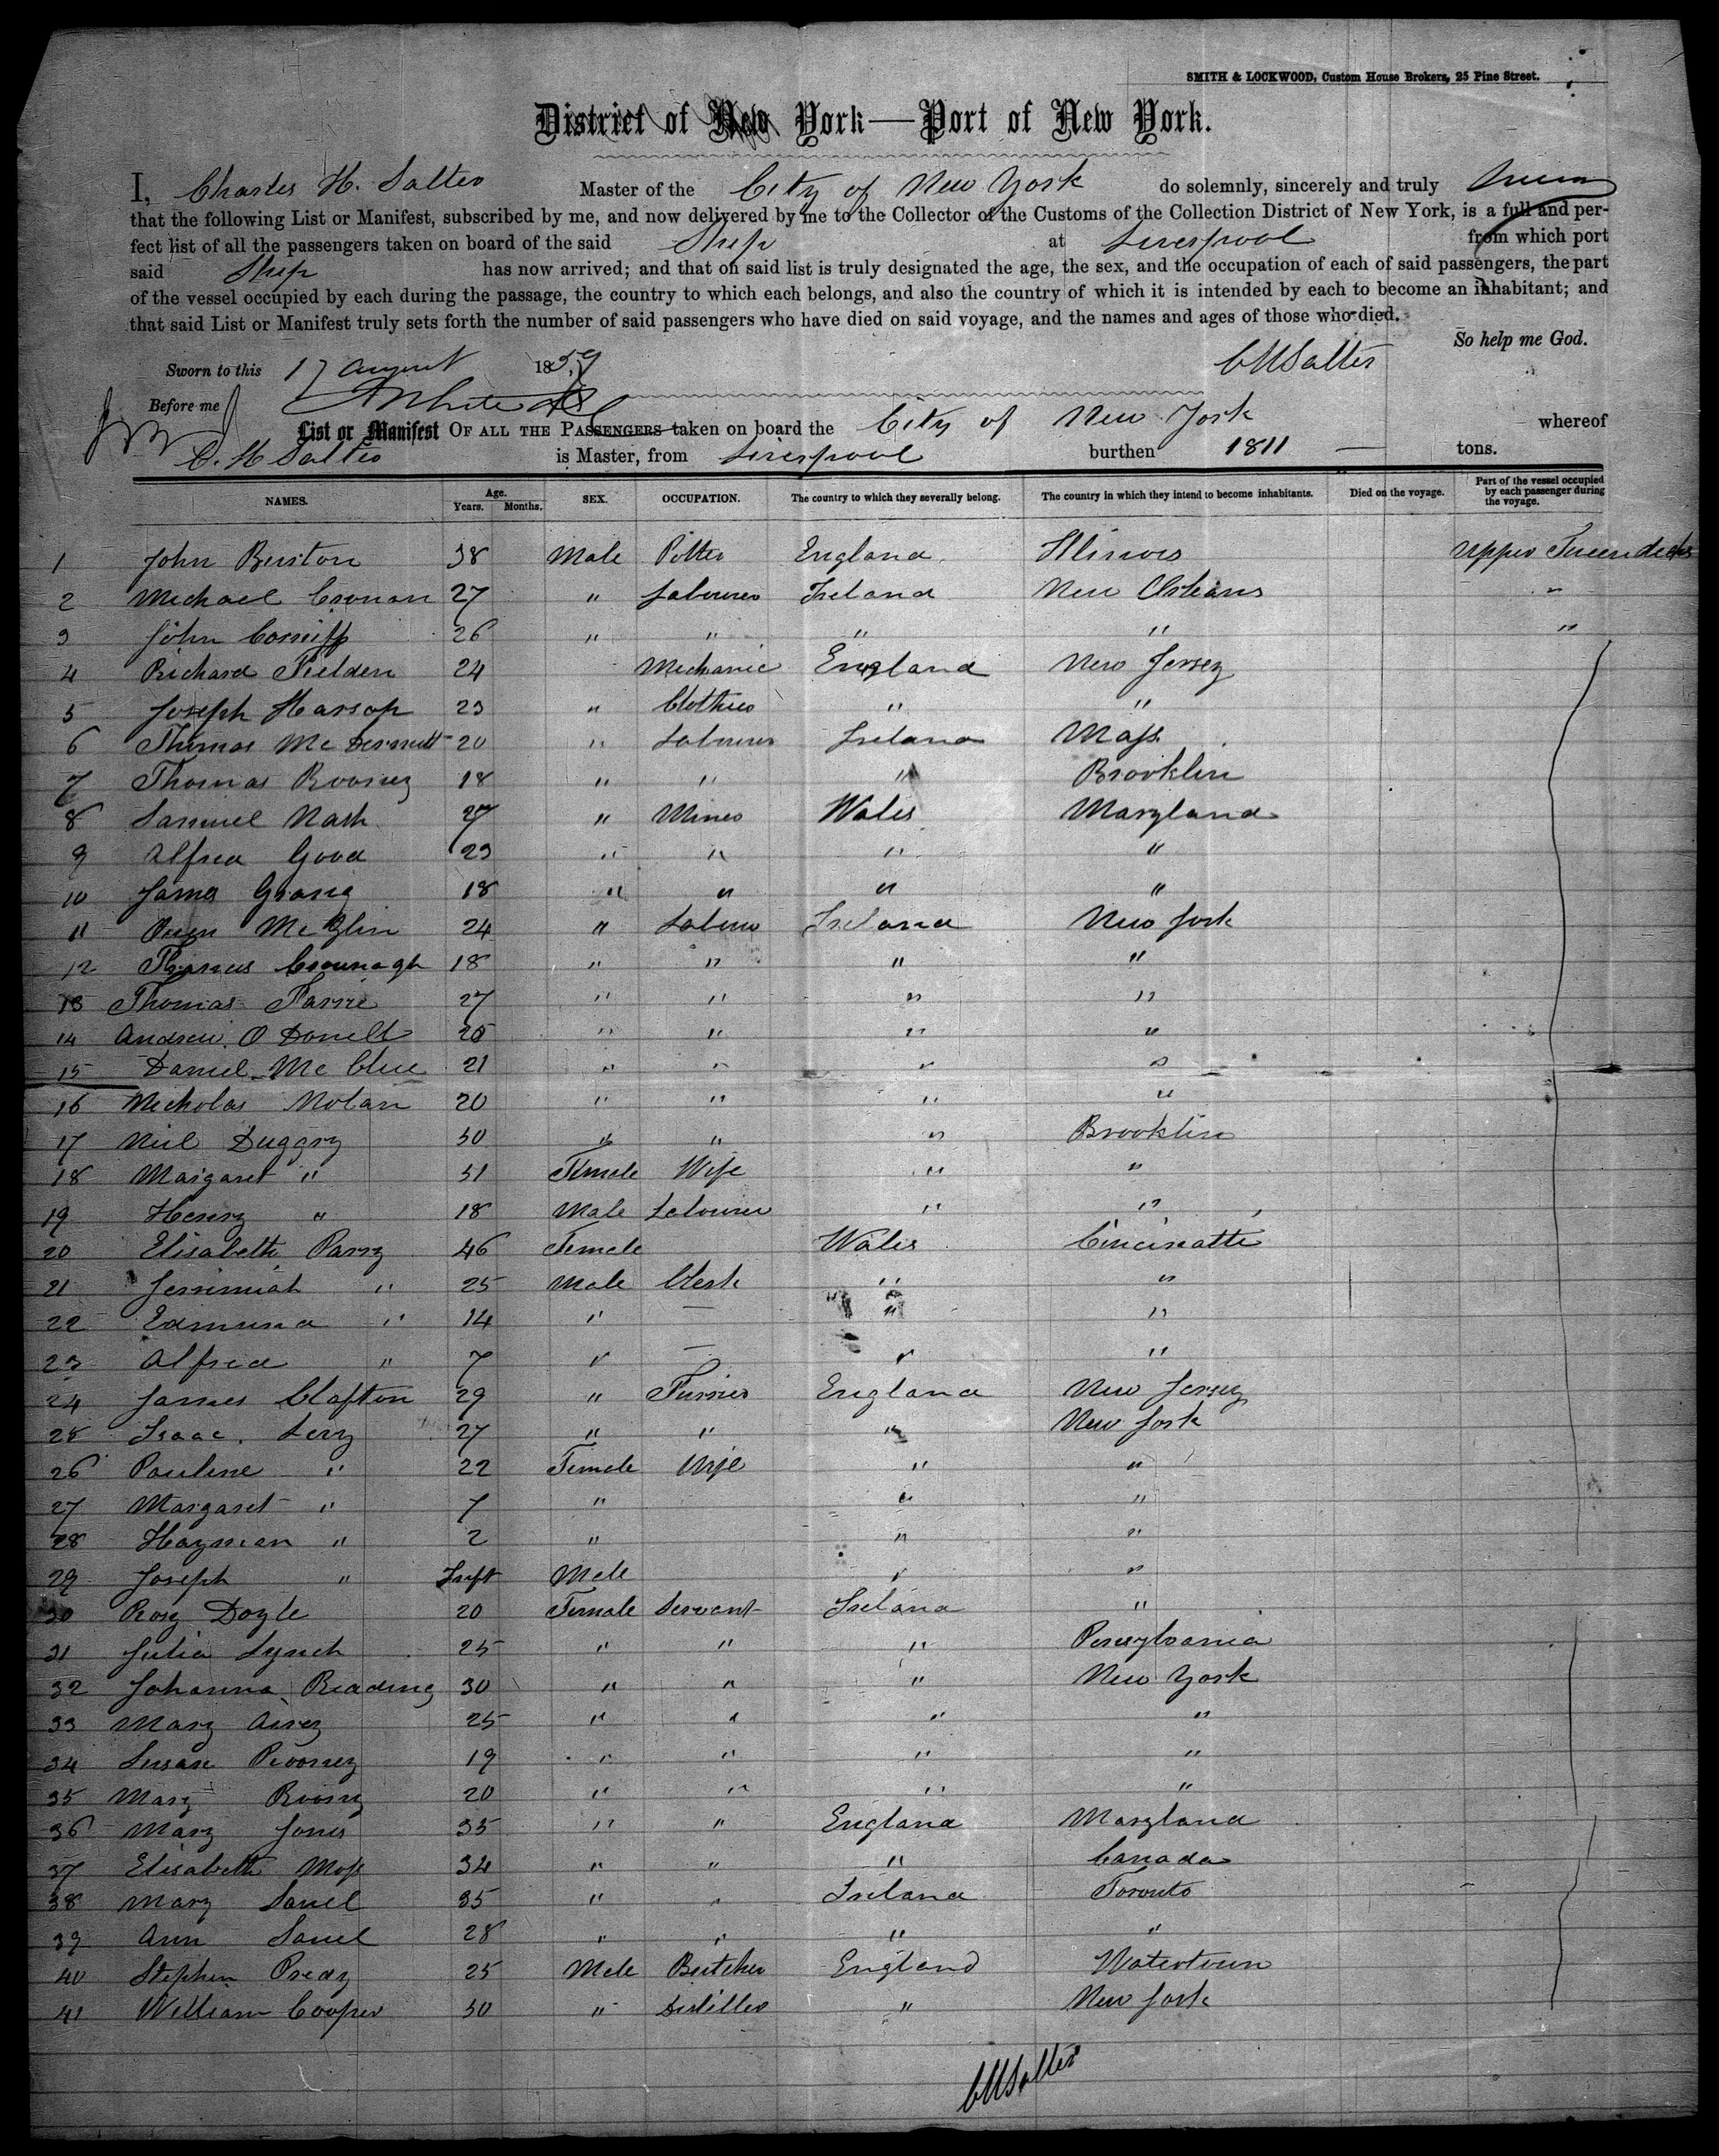 SMITH & LOCKWOOD, Custom House Brokers, 25 Pine Street.
District of New York—Port of New York.
I, Charles H. Salter Master of the City of New York do solemnly, sincerely and truly
that the following List or Manifest, subscribed by me, and now delivered by me to the Collector of the Customs of the Collection District of New York, is a full and per-
fect list of all the passengers taken on board of the said Ship at Liverpool from which port
said Ship has now arrived; and that on said list is truly designated the age, the sex, and the occupation of each of said passengers, the part
of the vessel occupied by each during the passage, the country to which each belongs, and also the country of which it is intended by each to become an inhabitant; and
that said List or Manifest truly sets forth the number of said passengers who have died on said voyage, and the names and ages of those who died.
So help me God.
Sworn to this 17 August 1859 CHSalter
Before me
List or Manifest OF ALL THE PASSENGERS taken on board the City of New York whereof
C. H Salter is Master, from Liverpool burthen 1811 — tons.
NAMES. Age. Years. Months. SEX. OCCUPATION. The country to which they severally belong. The country in which they intend to become inhabitants. Died on the voyage. Part of the vessel occupied by each passenger during the voyage.
1 John Burton 38 Male Potter England Illinois Upper Tweendecks
2 Michael Cronan 27 " Labourer Ireland New Orleans "
3 John 26 " " " " "
4 Richard Fielden 24 Mechanic England New Jersey
5 Joseph Harsop 23 " Clothier " "
6 Thomas McDermutt 20 " Labourer Ireland Mass
7 Thomas Rooney 18 " " " Brooklin
8 Samuel Nash 27 " Miner Wales Maryland
9 Alfred Good 23 " " " "
10 James 18 " " " "
11 Owen McGlin 24 " Labour Ireland New York
12 Cavunagh 18 " " " "
13 Thomas 27 " " " "
14 Andrew O Donell 25 " " " "
15 Daniel McClue 21 " " " "
16 Nicholas Nolan 20 " " " "
17 Niel Duggry 50 " " " Brooklin
18 Margaret " 51 Female Wife " "
19 Henry " 18 Male Labourer " "
20 Elisabeth Parry 46 Female Wales Cincinatti
21 Jerrimiah " 25 Male Clerk " "
22 Edmund " 14 " — " "
23 Alfred " 7 " — " "
24 James Clafton 29 " Furrier England New Jersey
25 Isaac Levy 27 " " " New York
26 Pauline " 22 Female Wife " "
27 Margaret " 7 " " "
28 Hayman " 2 " " "
29 Joseph " Inft Male " "
30 Rosy Doyle 20 Female Servant Ireland "
31 Julia Lynch 25 " " " Pensylvania
32 Johanna Reading 30 " " " New York
33 Mary Airey 25 " " " "
34 Susan Rooney 19 " " " "
35 Mary Roony 20 " " " "
36 Mary Jones 35 " " England Maryland
37 Elisabeth Moss 34 " " " Canada
38 Mary Savel 35 " " Ireland Toronto
39 Ann Savel 28 " " " "
40 Stephen Preay 25 Male Butcher England Watertown
41 William Cooper 50 " Distiller " New York
CHSalter